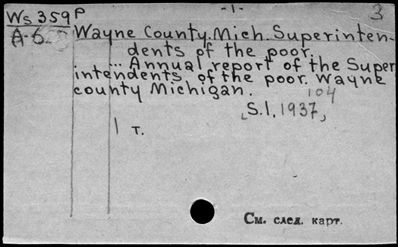 Ws 359 P
-1-
3
A-6
Wayne County, Mich. Superinten-
dents of the poor.
... Annual report of the Super
intendents of the poor. Wayne
county Michigan.
104
[S.l, 1937,
1 т.
См. след. карт.